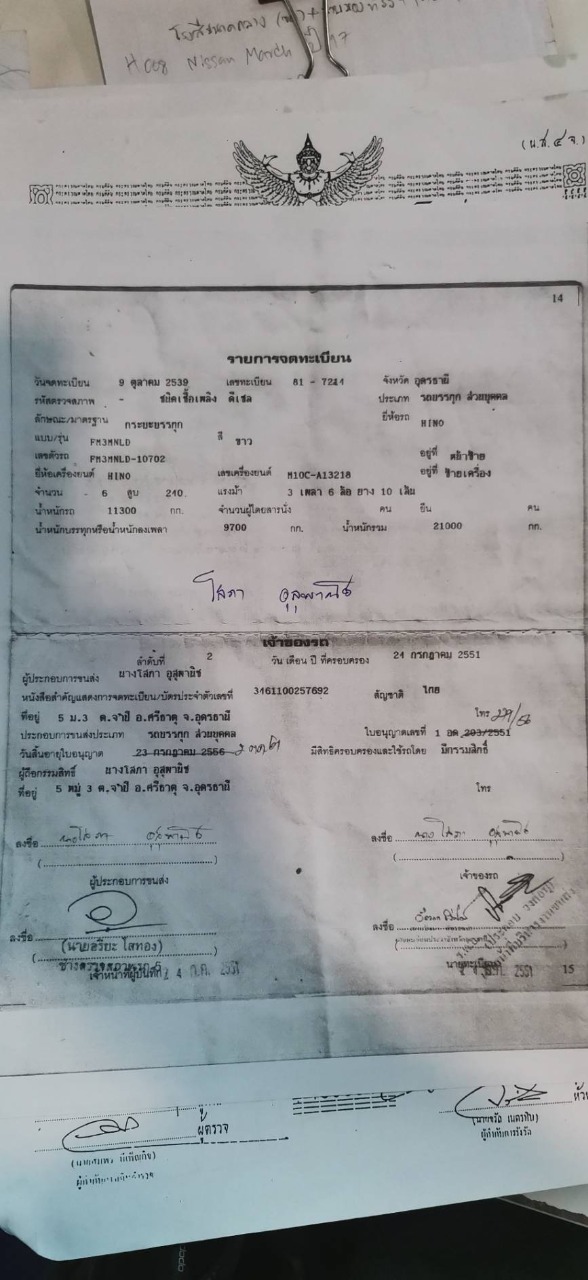 H 008 Nissan March ปี 17
(น.ส.๔ จ.)
14
รายการจดทะเบียน
วันจดทะเบียน 9 ตุลาคม 2539 เลขทะเบียน 81 - 7244 จังหวัด อุดรธานี
รหัสตรวจสภาพ - ชนิดเชื้อเพลิง ดีเซล ประเภท รถบรรทุก ส่วนบุคคล
ลักษณะ/มาตรฐาน กระบะบรรทุก ยี่ห้อรถ HINO
แบบ/รุ่น FM3MNLD สี ขาว
เลขตัวรถ FM3MNLD-10702 อยู่ที่ หน้าซ้าย
ยี่ห้อเครื่องยนต์ HINO เลขเครื่องยนต์ M10C-A13218 อยู่ที่ ซ้ายเครื่อง
จำนวน - 6 สูบ 240 แรงม้า 3 เพลา 6 ล้อ ยาง 10 เส้น
น้ำหนักรถ 11300 กก. จำนวนผู้โดยสารนั่ง คน ยืน คน
น้ำหนักบรรทุกหรือน้ำหนักลงเพลา 9700 กก. น้ำหนักรวม 21000 กก.
โสภา อุสุพานิช
เจ้าของรถ
ลำดับที่ 2 วัน เดือน ปี ที่ครอบครอง 24 กรกฎาคม 2551
ผู้ประกอบการขนส่ง นางโสภา อุสุพานิช
หนังสือสำคัญแสดงการจดทะเบียน/บัตรประจำตัวเลขที่ 3461100257692 สัญชาติ ไทย
ที่อยู่ 5 ม.3 ต.จำปี อ.ศรีธาตุ จ.อุดรธานี โทร 229/56
ประกอบการขนส่งประเภท รถบรรทุก ส่วนบุคคล ใบอนุญาตเลขที่ 1 อด 293/2551
วันสิ้นอายุใบอนุญาต 23 กรกฎาคม 2556 มีสิทธิครอบครองและใช้รถโดย มีกรรมสิทธิ์
ผู้ถือกรรมสิทธิ์ นางโสภา อุสุพานิช
ที่อยู่ 5 หมู่ 3 ต.จำปี อ.ศรีธาตุ จ.อุดรธานี โทร
ลงชื่อ นางโสภา อุสุพานิช ลงชื่อ นางโสภา อุสุพานิช
ผู้ประกอบการขนส่ง เจ้าของรถ
ลงชื่อ ลงชื่อ
(นายอริยะ โสทอง)
เจ้าหน้าที่ผู้บันทึก 24 ก.ค. 2551 นายทะเบียน 2551 15
ผู้ตรวจ
ผู้กำกับการรังวัด